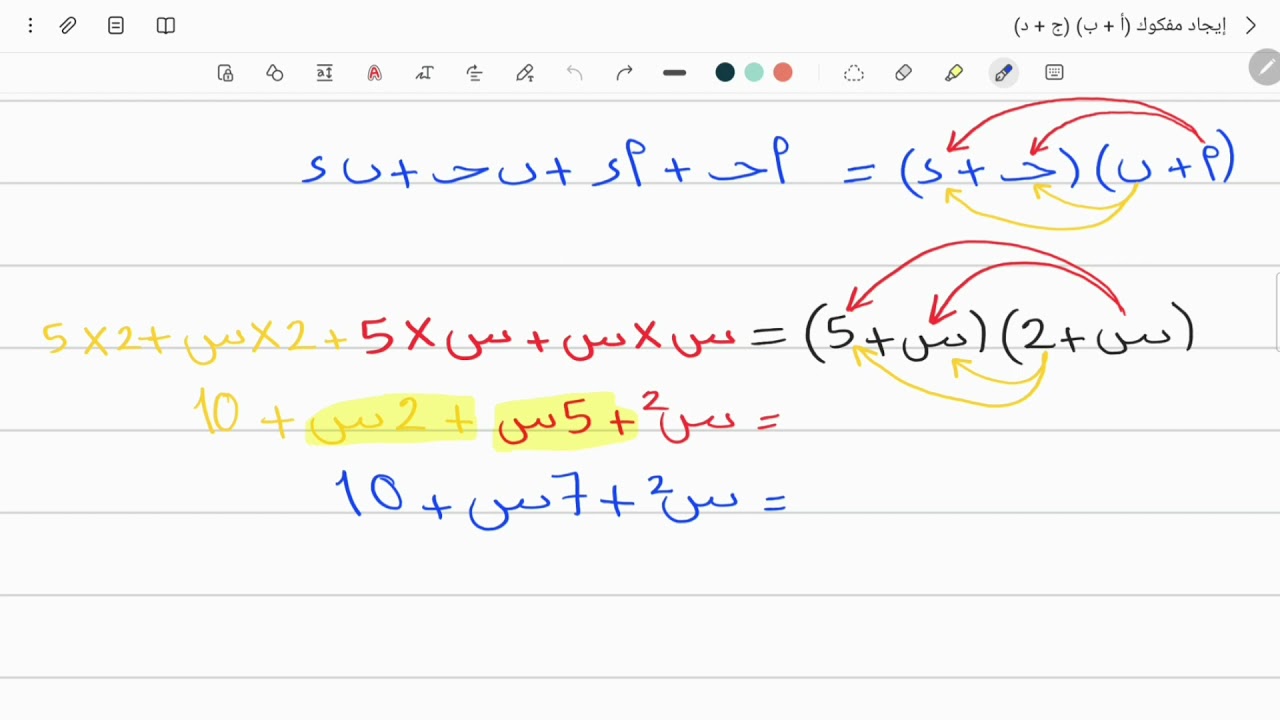 إيجاد مفكوك (أ + ب) (ج + د)
(أ + ب)(جـ + د) = أجـ + أد + ب جـ + ب د
(س + 2)(س + 5) = س × س + س × 5 + 2 × س + 2 × 5
= س² + 5س + 2س + 10
= س² + 7س + 10